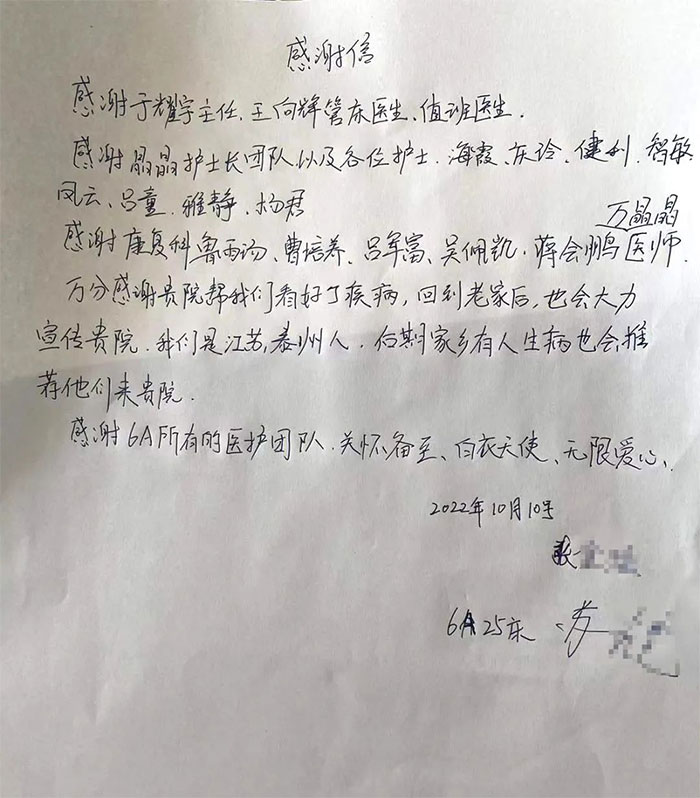 感谢信
感谢于耀宇主任、王向辉管床医生、值班医生.
感谢晶晶护士长团队以及各位护士.海霞、灰玲、健利、智敏
凤云、吕童、雅静、杨君
万晶晶
感谢康复科鲁雨汤、曹培养、吕军富、吴佩凯、蒋会鹏医师.
万分感谢贵院帮我们看好了疾病,回到老家后,也会大力
宣传贵院.我们是江苏泰州人,后期家乡有人生病也会推
荐他们来贵院.
感谢6A所有的医护团队.关怀备至、白衣天使、无限爱心.
2022年10月10号
6A25床